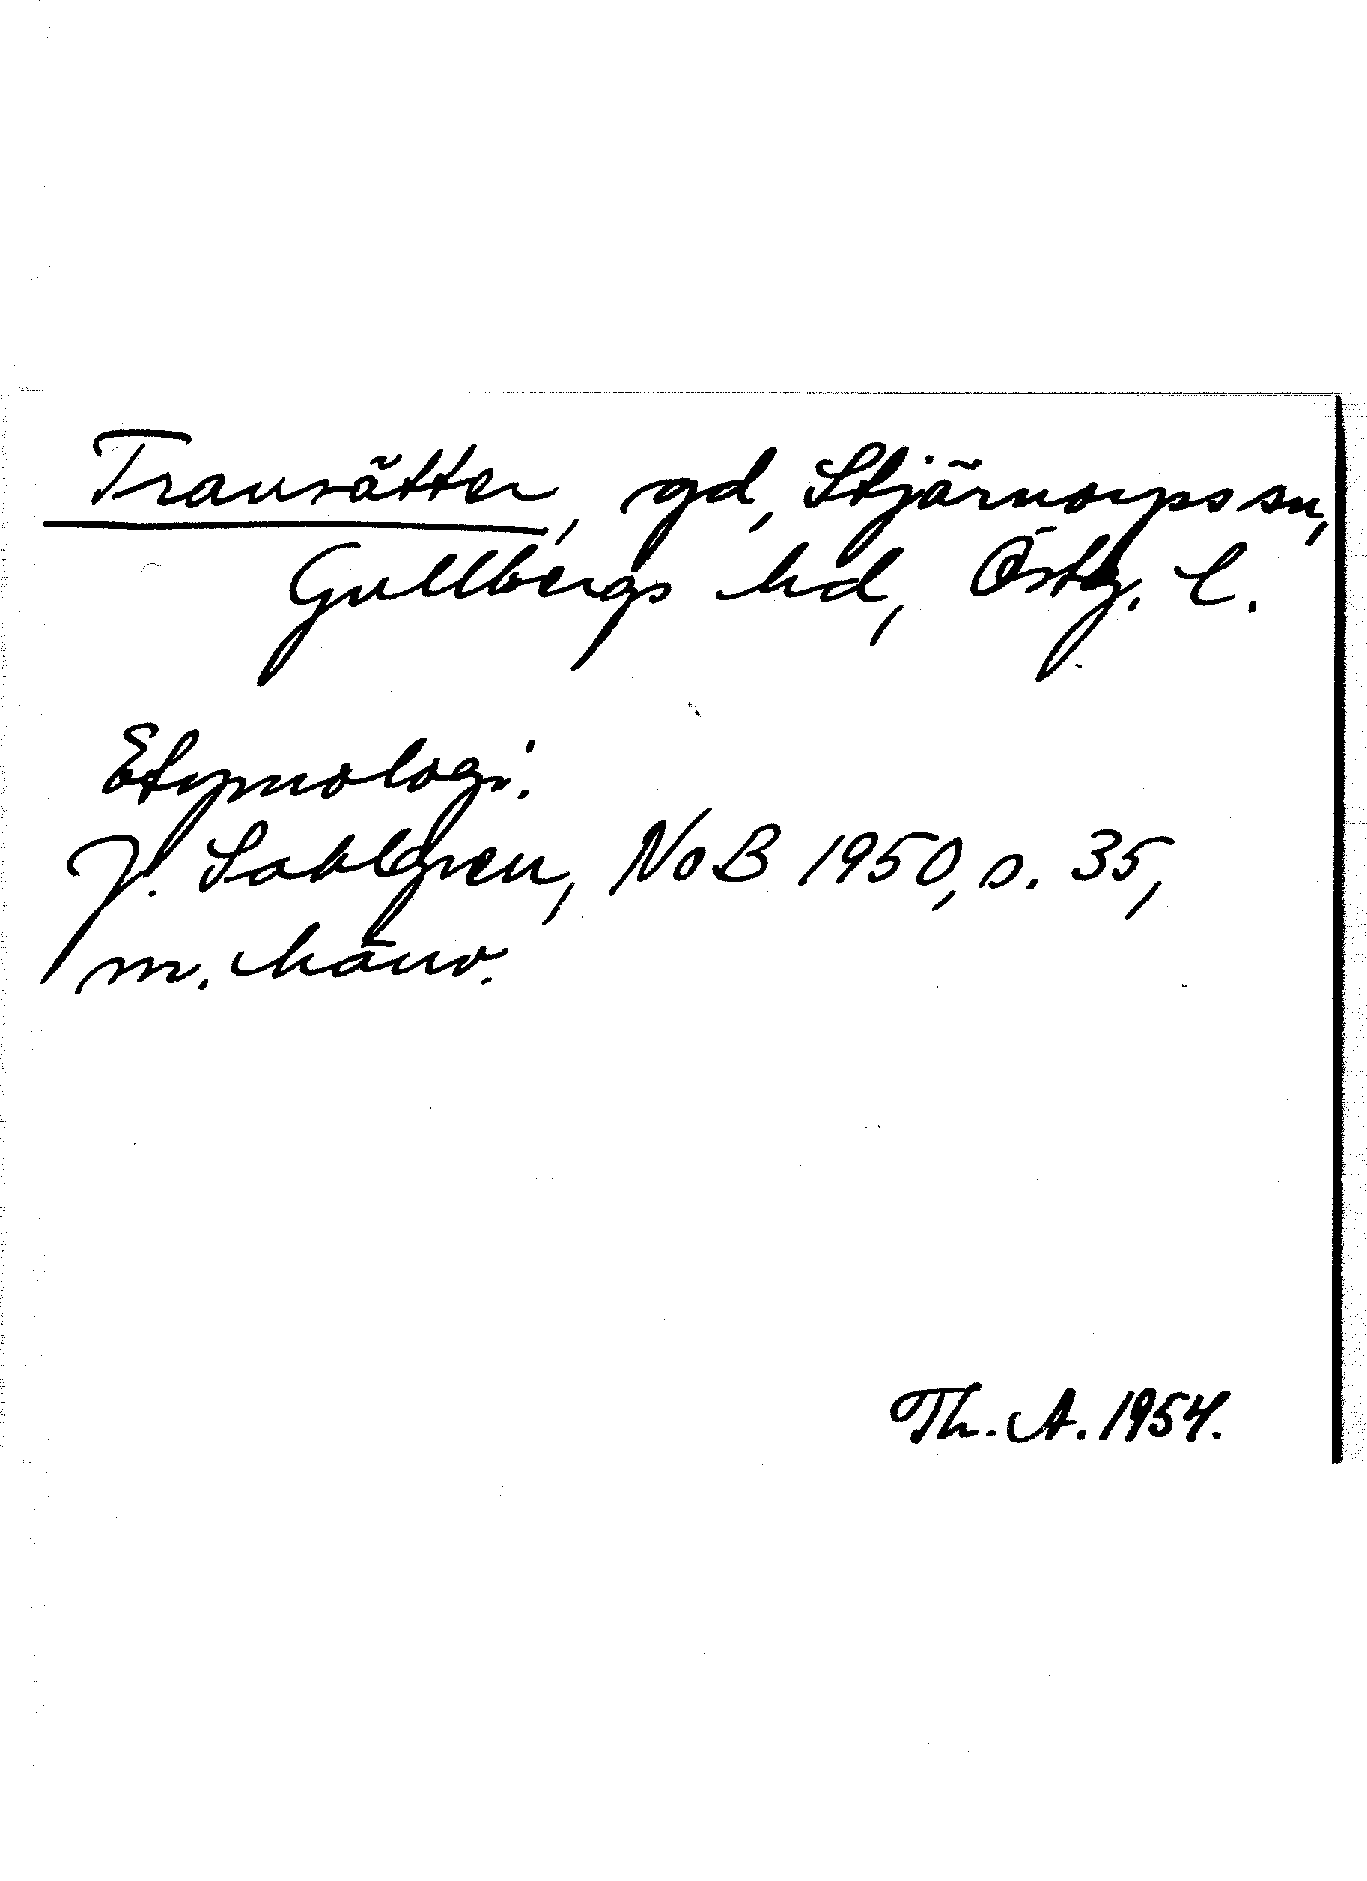 Transätter, gd, Stjärnorps sn,
Gullbergs hd, Östg. l.
Etymologi.
J. Sahlgren, NoB 1950, s. 35,
m. hänv.
Th. A. 1954.